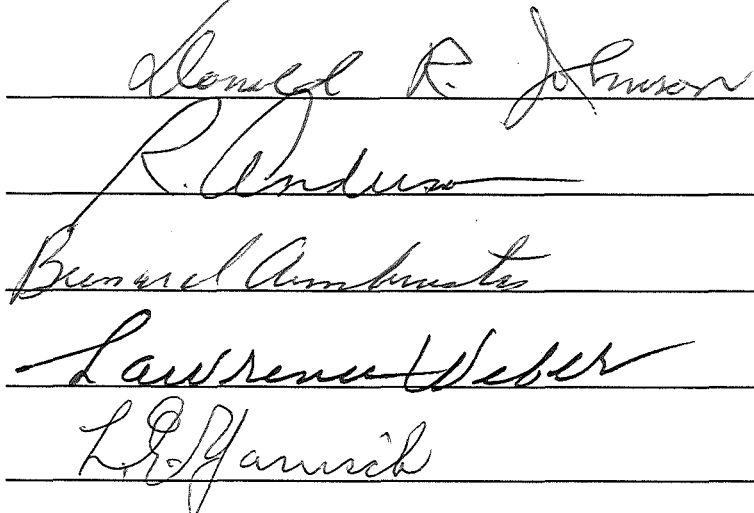 Donald R. Johnson
R. Anderson
Bernard Armbruster
Lawrence Weber
L.E.